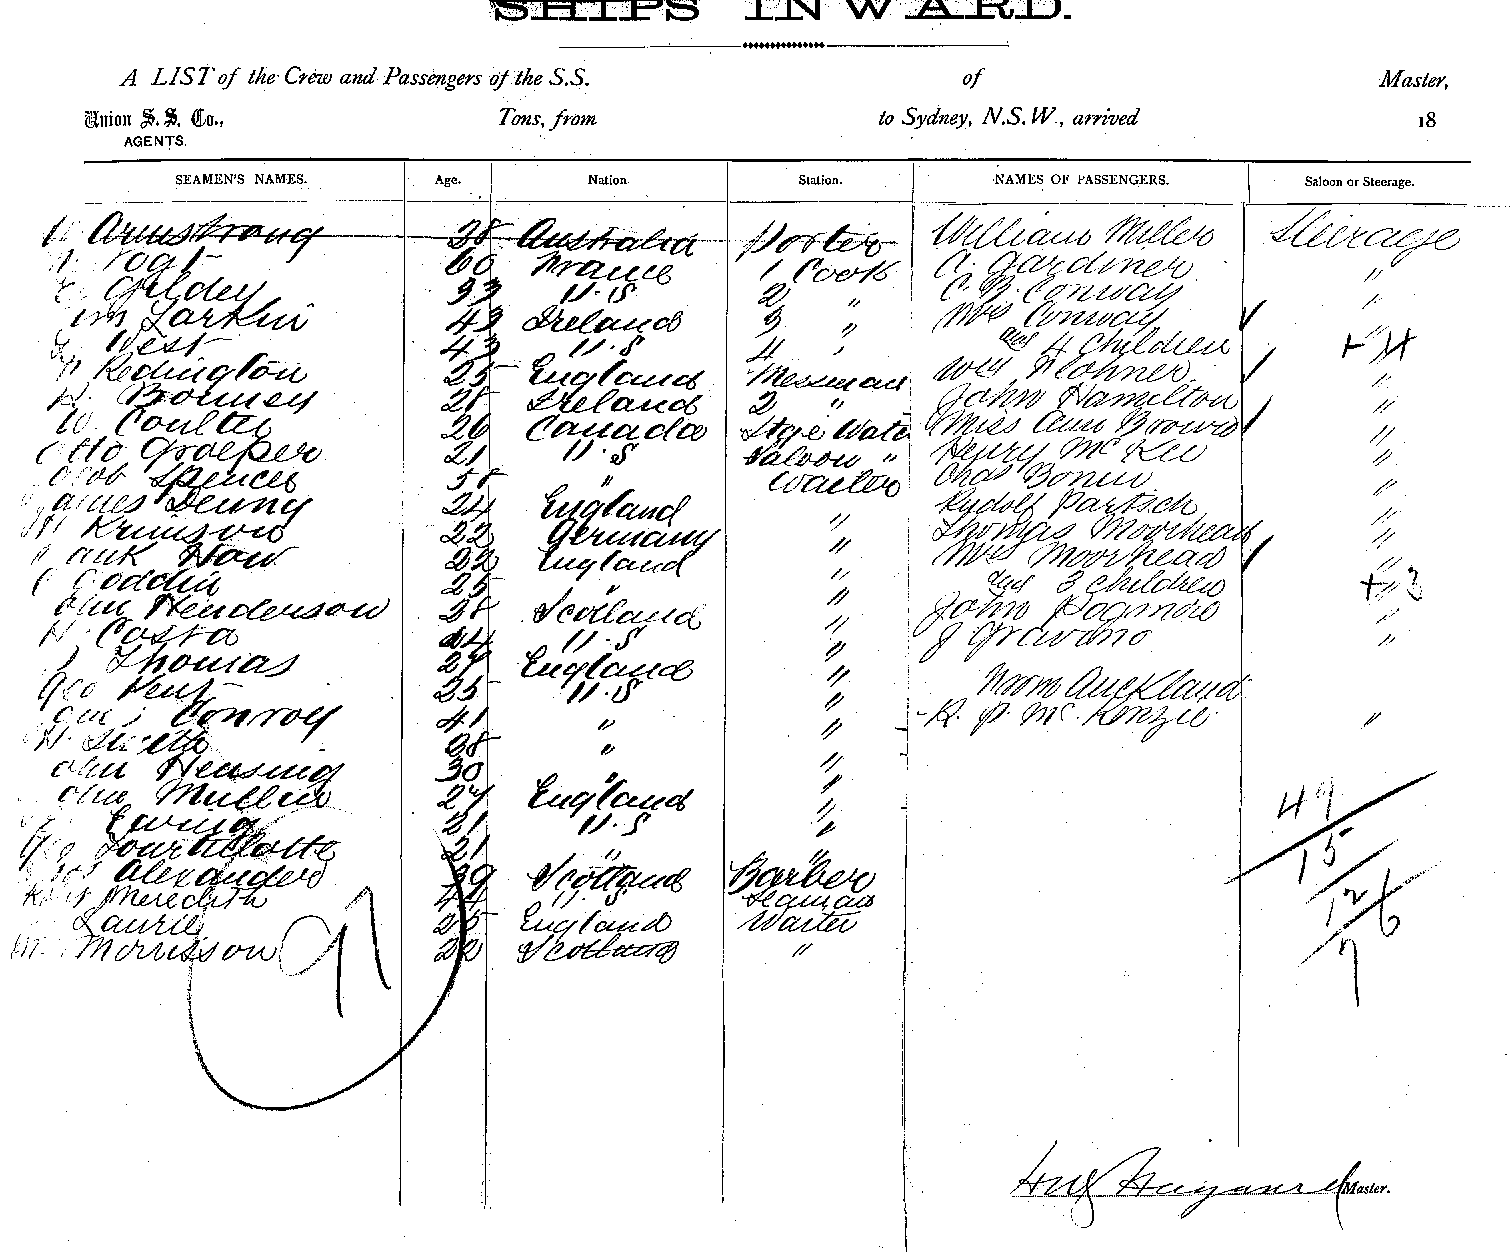 SHIPS INWARD.
A LIST of the Crew and Passengers of the S.S. of Master,
Union S. S. Co., Tons, from to Sydney, N.S.W., arrived 18
AGENTS.
SEAMEN'S NAMES. Age. Nation. Station. NAMES OF PASSENGERS. Saloon or Steerage.
Armstrong 28 Australia Porter William Miller Steerage
60 France 1 Cook A. Gardiner "
Gilden 33 U.S 2 " C. B. Conway "
Larkin 43 Ireland 3 " Mrs Conway "
West 43 U.S 4 " and 4 children + 4
Redington 25 England Messman "
H. Bonney 28 Ireland 2 " John Hamilton "
W. Coulter 26 Canada Stge Waite Miss Ann Brown "
Otto Groeper 21 U.S Saloon " Henry McKee "
Spencer 58 " Waiter Chas Bonin "
Denny 24 England " Rudolf Partsch "
Krimson 22 Germany " Thomas Moorhead "
How 22 England " Mrs Moorhead "
Goddin 25 " " and 3 children + 3
Henderson 28 Scotland " John "
H. Costa 44 U.S " J "
Thomas 27 England "
Geo Kent 25 U.S " From Auckland
Conroy 41 " " R. P. McKenzie "
H. Smith 38 " "
Hensing 30 " "
Mullin 27 England " 49
Ewing 21 U.S "
Geo 21 " " 15
Alexander 39 Scotland Barber
Meredith 44 U.S Seaman 12
Laurie 25 England Waiter 6
Morrisson 22 Scotland " 7
97
Master.